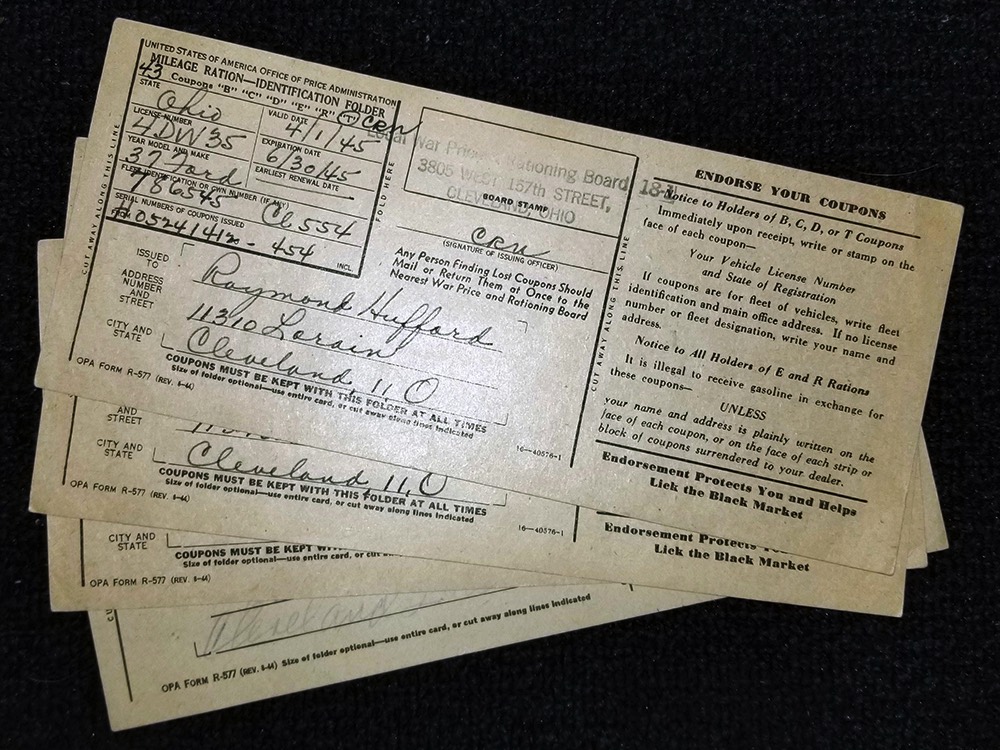 UNITED STATES OF AMERICA OFFICE OF PRICE ADMINISTRATION
MILEAGE RATION—IDENTIFICATION FOLDER
43 Coupons "B" "C" "D" "E" "R" "T" CRN
STATE
Ohio
VALID DATE
4/1/45
LICENSE NUMBER
4DW35
EXPIRATION DATE
6/30/45
YEAR MODEL AND MAKE
37 Ford
EARLIEST RENEWAL DATE
FLEET IDENTIFICATION OR OWN NUMBER (IF ANY)
786545 CL554
SERIAL NUMBERS OF COUPONS ISSUED
#05241412 - 454
INCL.
CUT AWAY ALONG THIS LINE
FOLD HERE
ISSUED TO
Raymond Hufford
ADDRESS NUMBER AND STREET
11310 Lorain
CITY AND STATE
Cleveland, 11, O
COUPONS MUST BE KEPT WITH THIS FOLDER AT ALL TIMES
Size of folder optional—use entire card, or cut away along lines indicated
OPA FORM R-577 (REV. 8-44)
16—40576-1
War Price Rationing Board 18-1
3805 WEST 157th STREET,
CLEVELAND, OHIO
BOARD STAMP
CRN
(SIGNATURE OF ISSUING OFFICER)
Any Person Finding Lost Coupons Should
Mail or Return Them at Once to the
Nearest War Price and Rationing Board
CUT AWAY ALONG THIS LINE
ENDORSE YOUR COUPONS
Notice to Holders of B, C, D, or T Coupons
Immediately upon receipt, write or stamp on the
face of each coupon—
Your Vehicle License Number
and State of Registration
If coupons are for fleet of vehicles, write fleet
identification and main office address. If no license
number or fleet designation, write your name and
address.
Notice to All Holders of E and R Rations
It is illegal to receive gasoline in exchange for
these coupons—
UNLESS
your name and address is plainly written on the
face of each coupon, or on the face of each strip or
block of coupons surrendered to your dealer.
Endorsement Protects You and Helps
Lick the Black Market
AND
STREET
CITY AND
STATE
Cleveland 11, O
COUPONS MUST BE KEPT WITH THIS FOLDER AT ALL TIMES
Size of folder optional—use entire card, or cut away along lines indicated
OPA FORM R-577 (REV. 8-44)
16—40576-1
Endorsement Protects
Lick the Black Market
CITY AND
STATE
COUPONS MUST BE KEPT
Size of folder optional—use entire card, or cut
OPA FORM R-577 (REV. 8-44)
Cleveland
OPA FORM R-577 (REV. 8-44) Size of folder optional—use entire card, or cut away along lines indicated